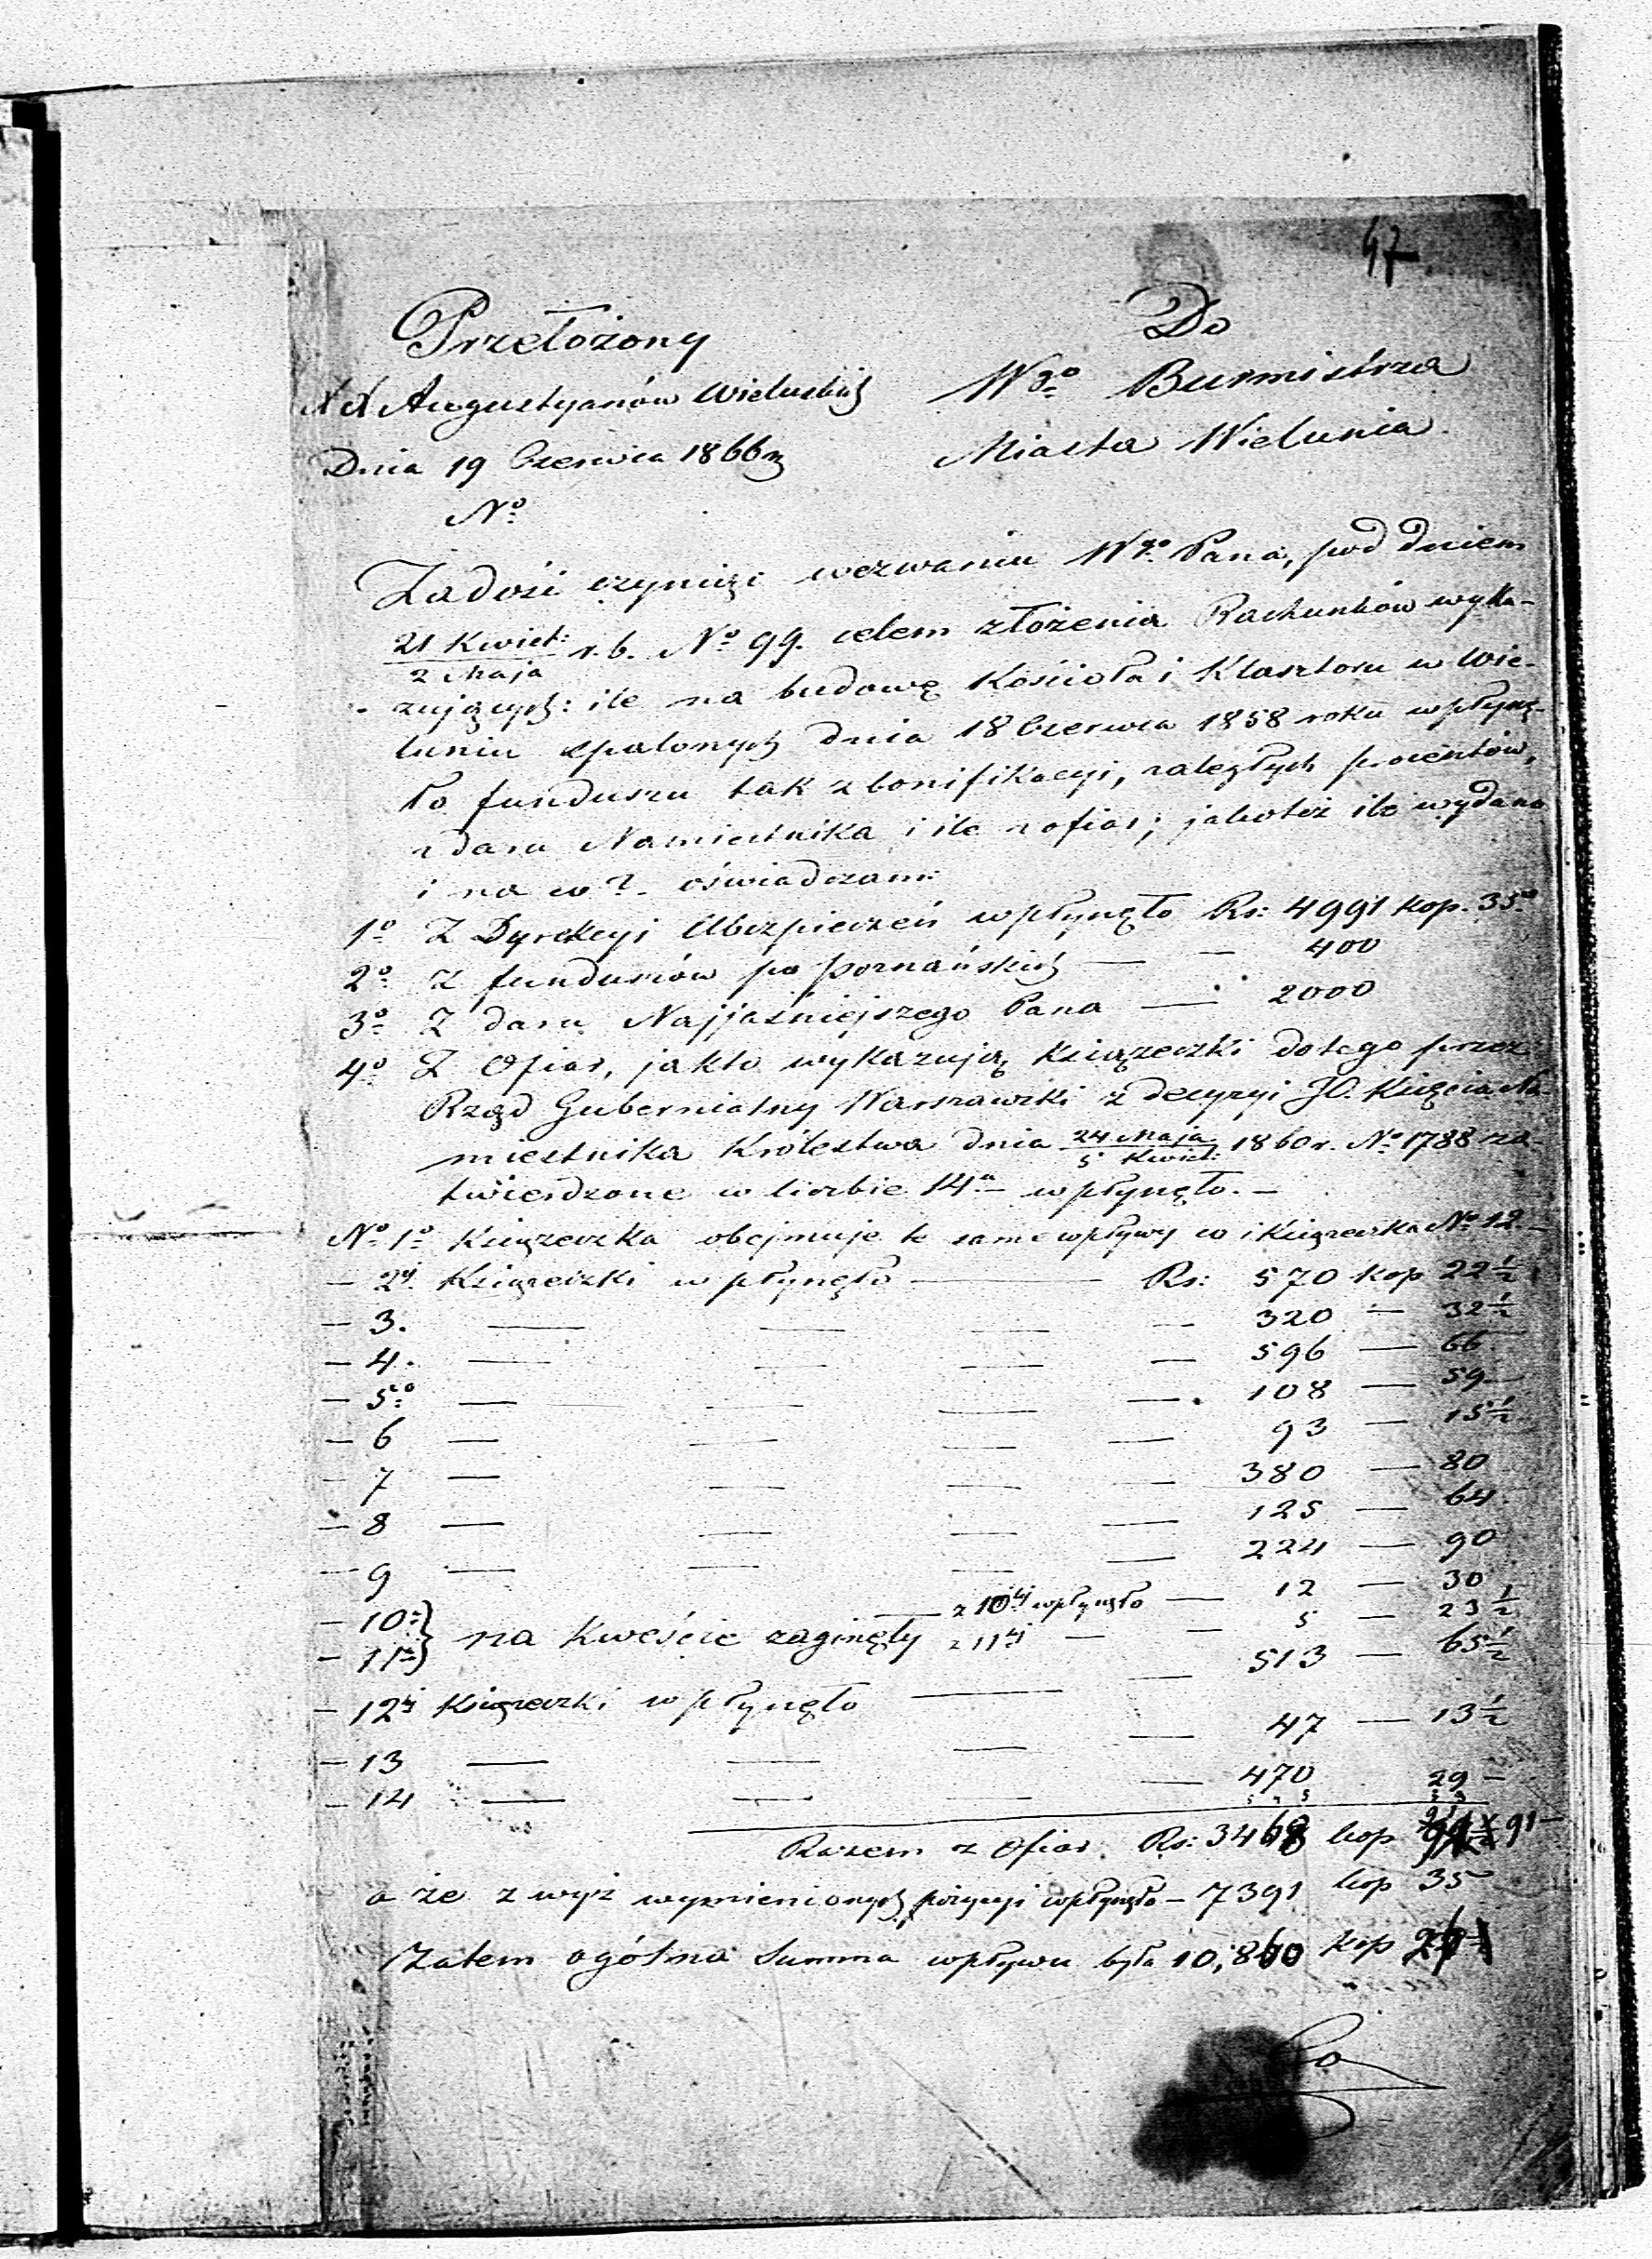 47
Przełożony
XX Augustyanów Wieluskich
Dnia 19 Czerwca 1866 r
No
Do
Wgo Burmistrza
Miasta Wielunia
Zadość czyniąc wezwaniu Wgo Pana, pod dniem
21 Kwiet: / 2 Maja r. b. No 99. celem złożenia Rachunków wyka-
zujących: ile na budowę Kościoła i Klasztoru w Wie-
luniu spalonych dnia 18 Czerwca 1858 roku wpłynę-
ło funduszu tak z bonifikacyi, zaległych procentów,
z daru Namiestnika i ile z ofiar; jakoteż ile wydano
i na co? oświadczam:
1o Z Dyrekcyi Ubezpieczeń wpłynęło Rs: 4991 kop. 35
2o Z funduszów po poznańskich — — 400
3o Z daru Najjaśniejszego Pana — 2000
4o Z Ofiar, jak to wykazują książeczki do tego przez
Rząd Gubernialny Warszawski z decyzyi JO. Księcia Na-
miestnika Królestwa dnia 24 Maja / 5 Kwiet: 1860 r. No 1788 za-
twierdzone w liczbie 14 wpłynęło. —
No 1o Książeczka obejmuje te same wpływy co i Książeczka No 12 —
— 2ej Książeczki wpłynęło — — Rs: 570 kop 22½
— 3. — — — — 320 — 32½
— 4. — — — — 596 — 66
— 5o — — — — 108 — 59 —
— 6 — — — — 93 — 15½
— 7 — — — — 380 — 80
— 8 — — — — 125 — 64.
— 9 — — — — 224 — 90
— 10 } — z 10ej wpłynęło — 12 — 30
— 11 } na kweście zaginęły z 11ej — — 5 — 23½
— 12ej Książeczki wpłynęło — — 513 — 65½
— 13 — — — — 47 — 13½
— 14 — — — — 470 29 —
Razem z Ofiar. Rs: 3468 kop 91 —
a że z wyż wymienionych pozycyi wpłynęło — 7391 kop 35
Zatem ogólna Summa wpływu była 10,860 kop